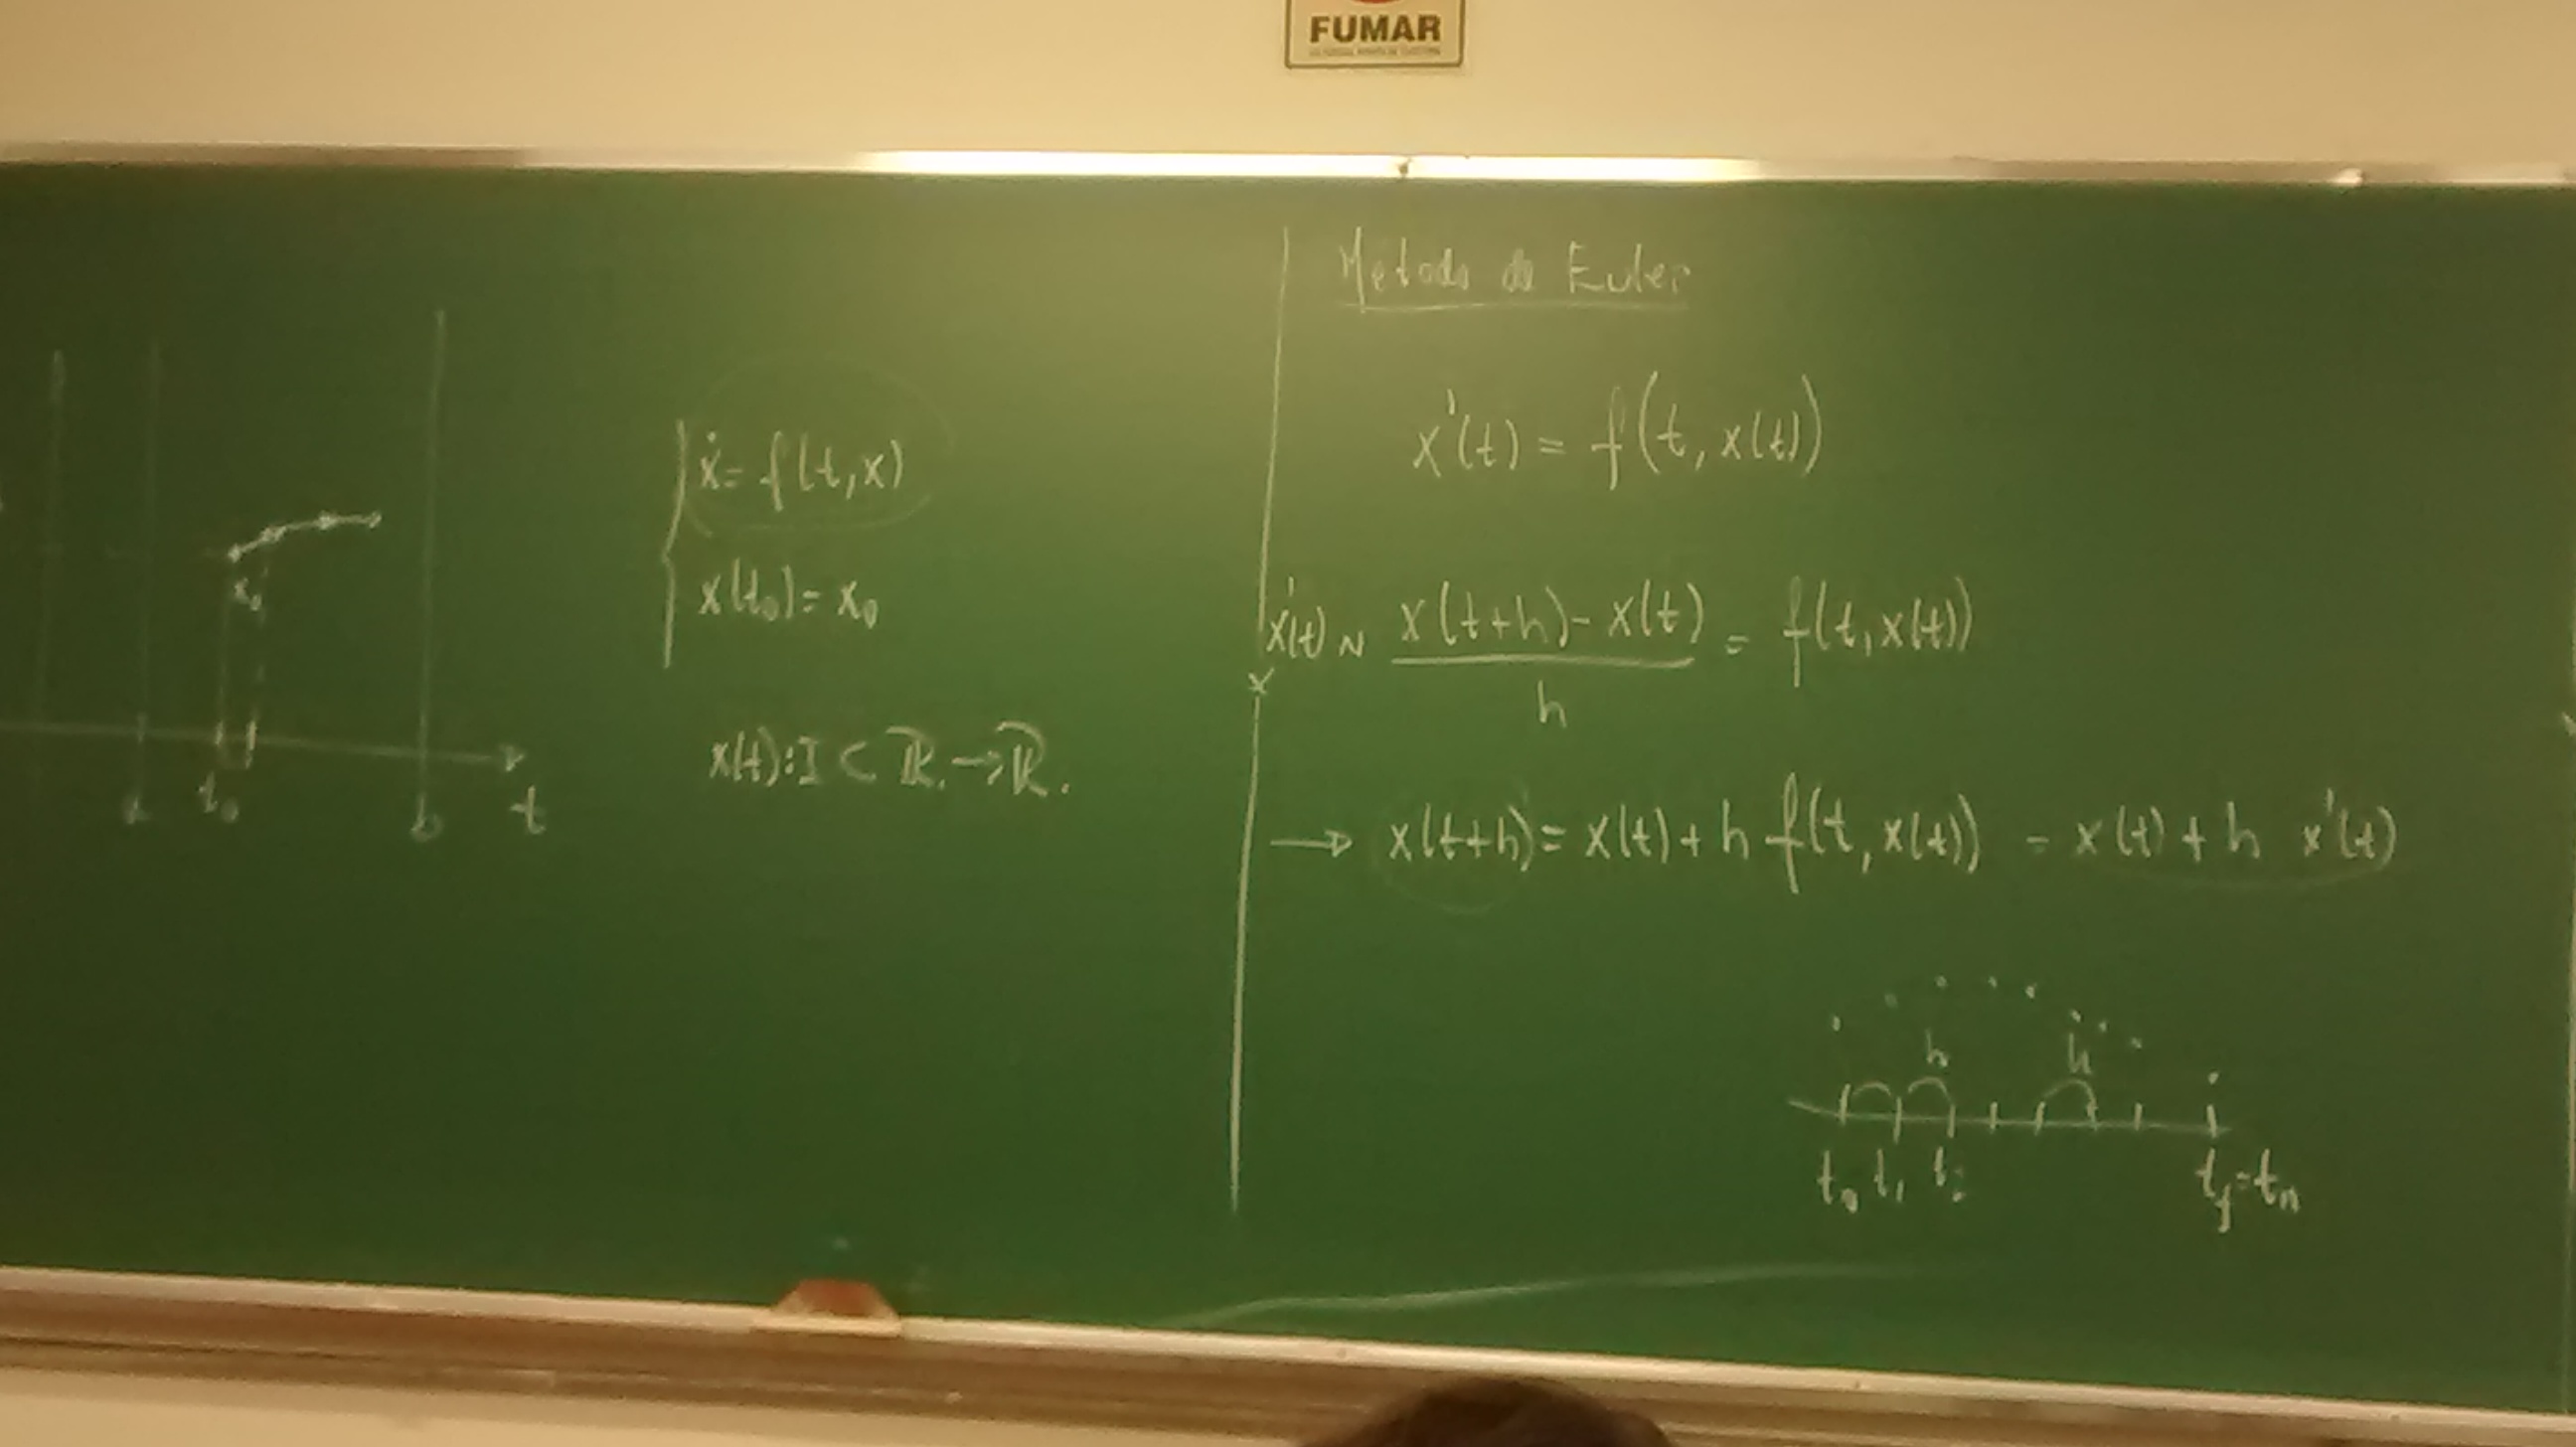 FUMAR
x₀
a
t₀
b
t
ẋ = f(t,x)
x(t₀) = x₀
x(t): I ⊂ ℝ → ℝ.
Metodo de Euler
x'(t) = f(t, x(t))
x'(t) ~ x(t+h) - x(t) / h = f(t, x(t))
x
→ x(t+h) = x(t) + h f(t, x(t)) = x(t) + h x'(t)
h h
t₀ t₁ t₂ t_f = t_n